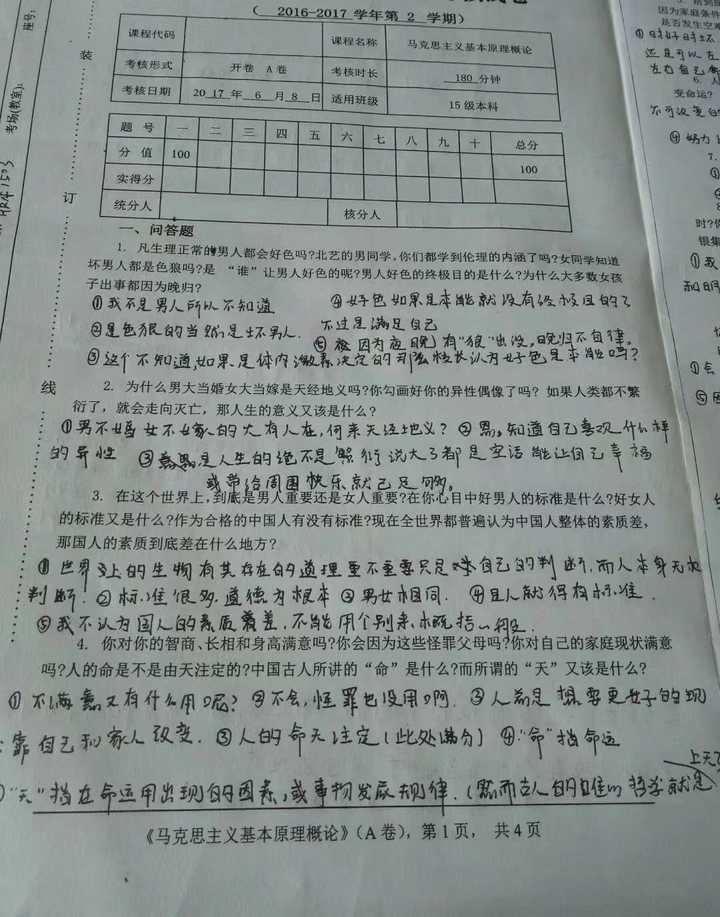 ( 2016-2017 学年第 2 学期)
课程代码 课程名称 马克思主义基本原理概论
考核形式 开卷 A卷 考核时长 180 分钟
考核日期 2017 年 6 月 8 日 适用班级 15级本科
题 号 一 二 三 四 五 六 七 八 九 十 总分
分 值 100 100
实得分
统分人 核分人
一、问答题
1. 凡生理正常的男人都会好色吗?北艺的男同学,你们都学到伦理的内涵了吗?女同学知道
坏男人都是色狼吗?是 “谁”让男人好色的呢?男人好色的终极目的是什么?为什么大多数女孩
子出事都因为晚归?
①我不是男人所以不知道 ④好色如果是本能就没有终极目的了
②是色狼的当然是坏男人. 不过是满足自己
⑤ 因为夜晚有“狼”出没,晚归不自律。
③这个不知道,如果是体内激素决定的 认为好色是本能吗?
2. 为什么男大当婚女大当嫁是天经地义吗?你勾画好你的异性偶像了吗? 如果人类都不繁
衍了,就会走向灭亡,那人生的意义又该是什么?
①男不婚女不嫁的大有人在,何来天经地义? ②嗯,知道自己喜欢什么样
的异性 ③ 是人生的绝不是繁衍 说大了都是空话 能让自己幸福
或带给周围快乐就已足够。
3. 在这个世界上,到底是男人重要还是女人重要?在你心目中好男人的标准是什么?好女人
的标准又是什么?作为合格的中国人有没有标准?现在全世界都普遍认为中国人整体的素质差,
那国人的素质到底差在什么地方?
①世界上的生物有其存在的道理重不重要只是 自己的判断,而人本身无权
判断. ②标准很多.道德为根本 ③男女相同. ④是人就得有标准.
⑤我不认为国人的素质 差.不能用个别来概括一切.
4. 你对你的智商、长相和身高满意吗?你会因为这些怪罪父母吗?你对自己的家庭现状满意
吗?人的命是不是由天注定的?中国古人所讲的“命”是什么?而所谓的“天”又该是什么?
①不满意又有什么用呢? ②不会,怪罪也没用啊. ③人都是想要更好的现
靠自己和家人改变. ③人的命天注定(此处满分) ④“命”指命运
“天”指在命运中出现的因素,或事物发展规律.(然而古人的 哲学就是
上天
《马克思主义基本原理概论》(A 卷), 第 1 页, 共 4 页
座号:
考场(教室):
装
订
线
因为家庭条件
是否发生空
还是可以在
变命运?
时?
银集
①我
和
①会